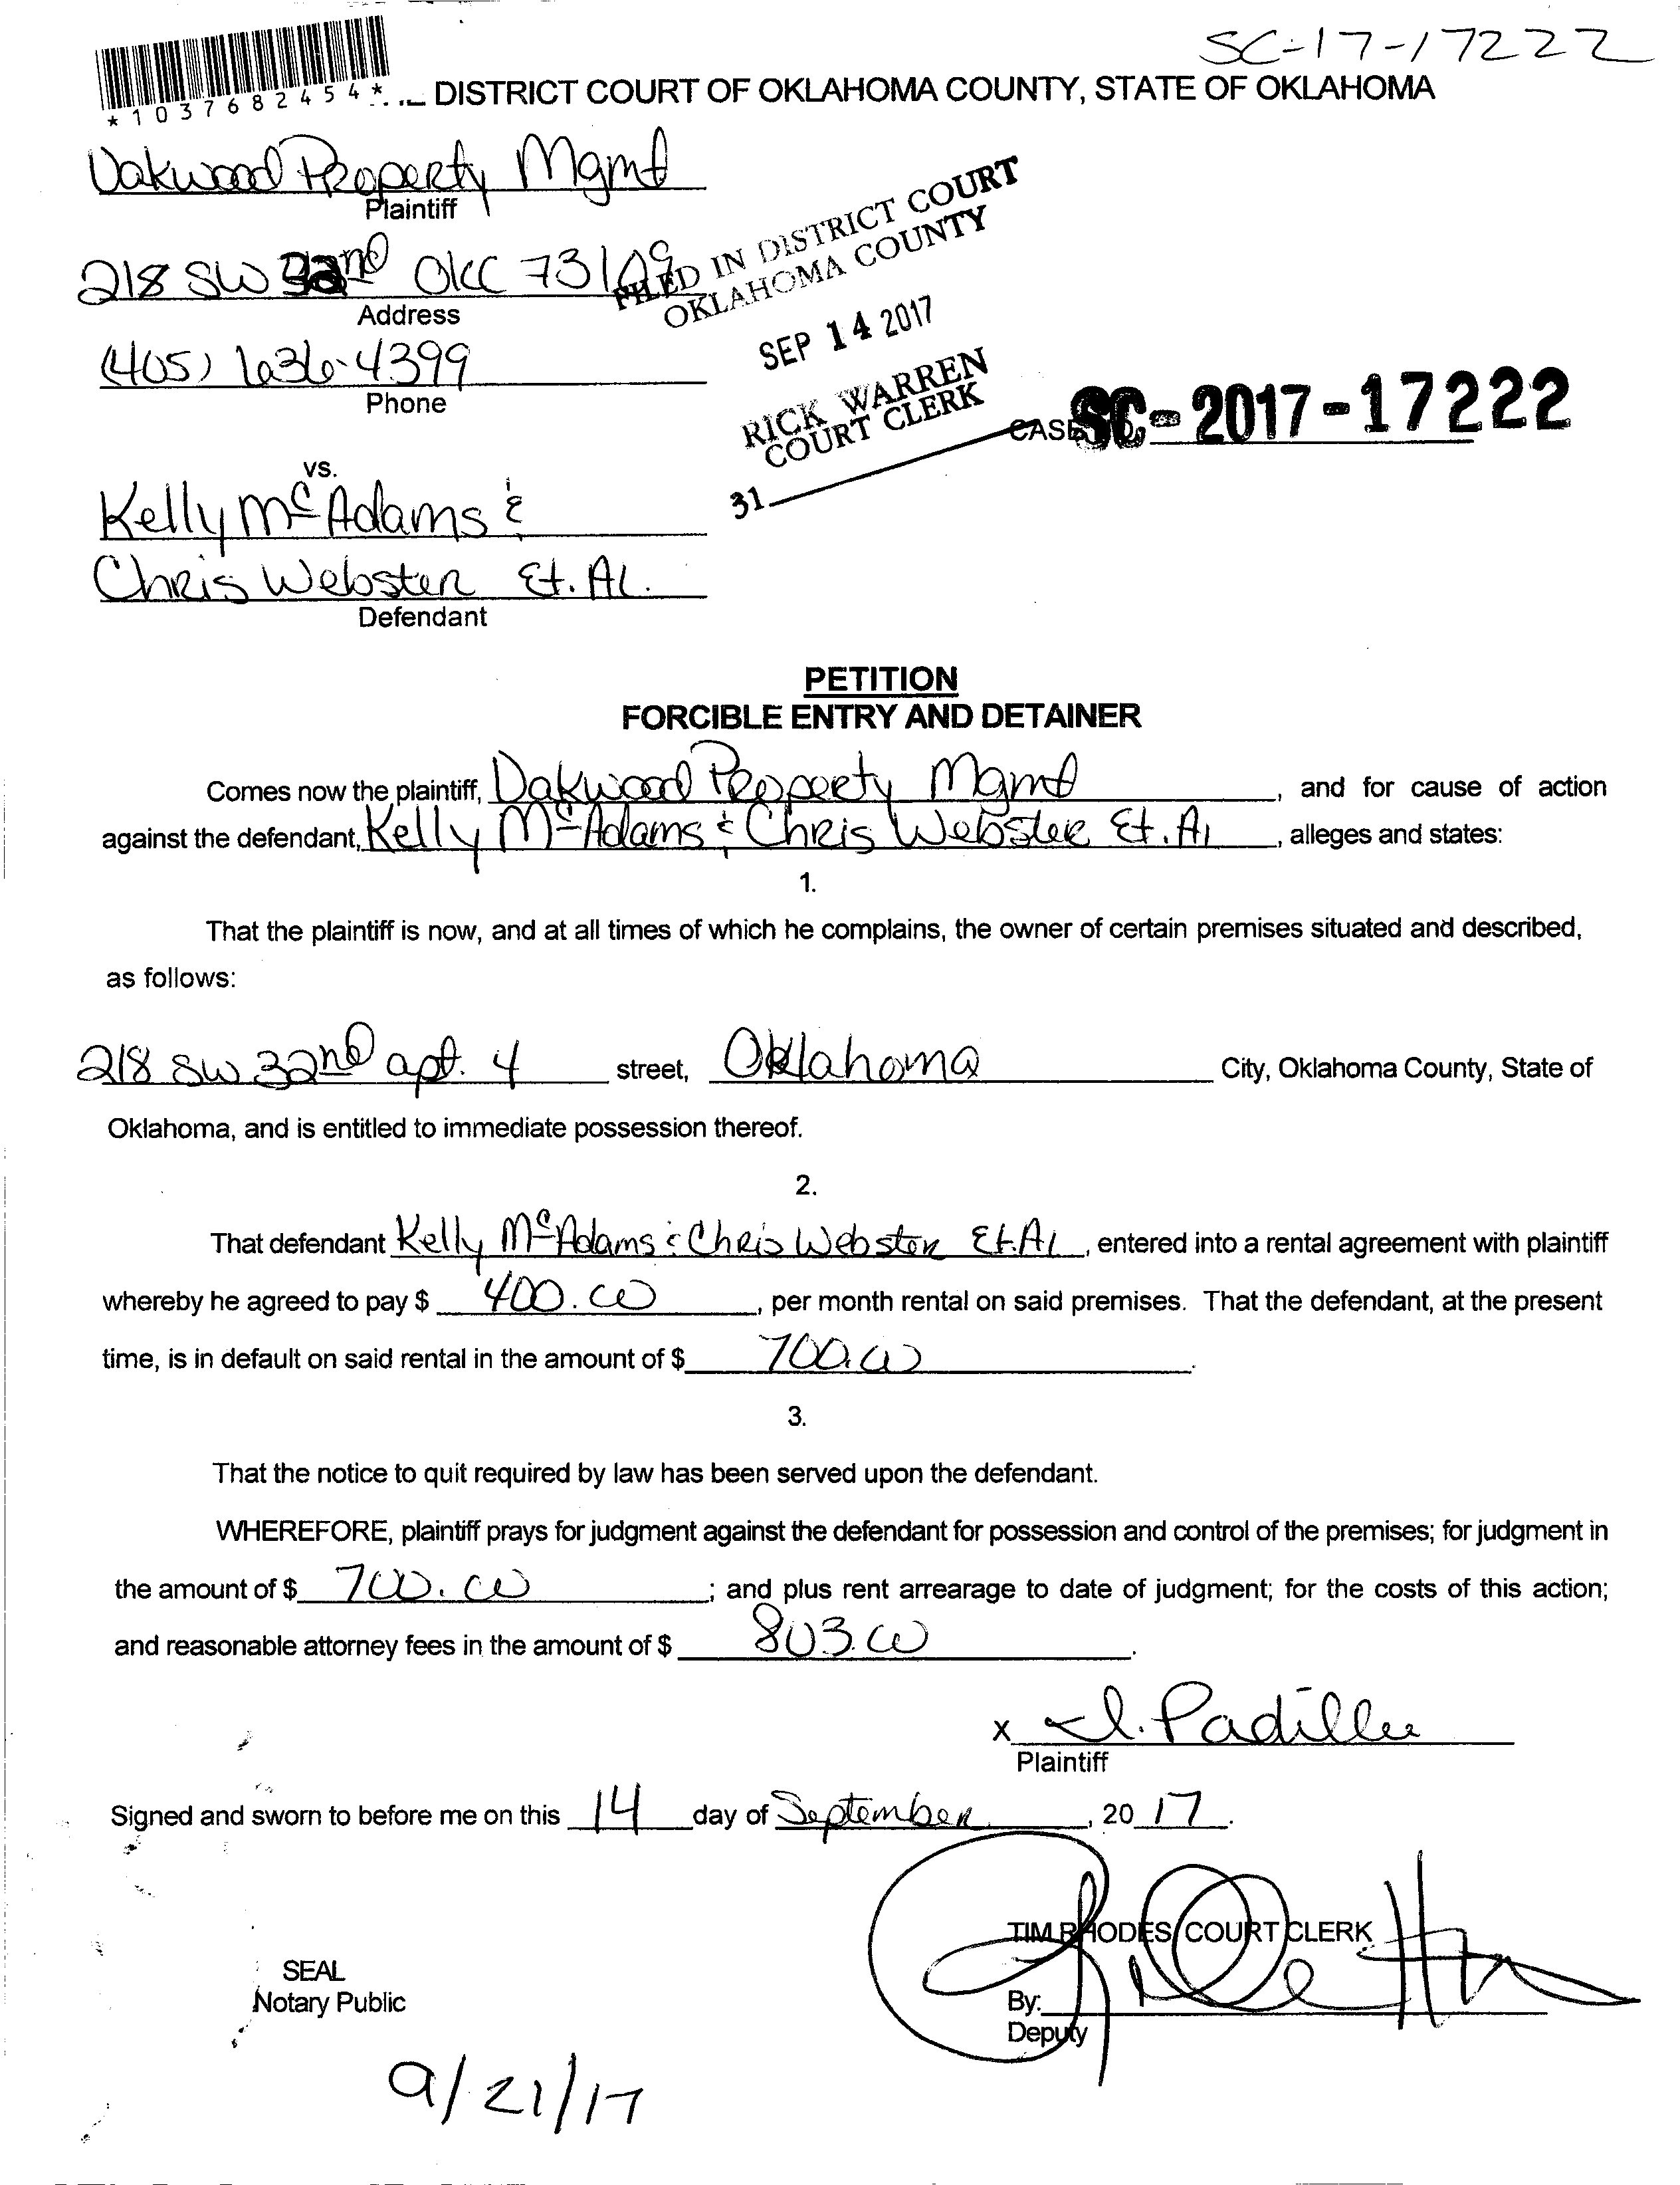 SC-17-17222
*1037682454*
DISTRICT COURT OF OKLAHOMA COUNTY, STATE OF OKLAHOMA
Oakwood Property Mgmt
Plaintiff
218 SW 32nd OKC 73109
Address
(405) 636-4399
Phone
FILED IN DISTRICT COURT
OKLAHOMA COUNTY
SEP 14 2017
RICK WARREN
COURT CLERK
31
CASE NO. SC-2017-17222
vs.
Kelly McAdams &
Chris Webster Et. Al.
Defendant
PETITION
FORCIBLE ENTRY AND DETAINER
Comes now the plaintiff, Oakwood Property Mgmt, and for cause of action
against the defendant, Kelly McAdams & Chris Webster Et. Al, alleges and states:
1.
That the plaintiff is now, and at all times of which he complains, the owner of certain premises situated and described,
as follows:
218 SW 32nd apt. 4 street, Oklahoma City, Oklahoma County, State of
Oklahoma, and is entitled to immediate possession thereof.
2.
That defendant Kelly McAdams & Chris Webster Et. Al, entered into a rental agreement with plaintiff
whereby he agreed to pay $ 400.00, per month rental on said premises. That the defendant, at the present
time, is in default on said rental in the amount of $ 700.00.
3.
That the notice to quit required by law has been served upon the defendant.
WHEREFORE, plaintiff prays for judgment against the defendant for possession and control of the premises; for judgment in
the amount of $ 700.00; and plus rent arrearage to date of judgment; for the costs of this action;
and reasonable attorney fees in the amount of $ 803.00.
x J. Padilla
Plaintiff
Signed and sworn to before me on this 14 day of September, 2017.
TIM RHODES COURT CLERK
SEAL
Notary Public
By:
Deputy
9/21/17